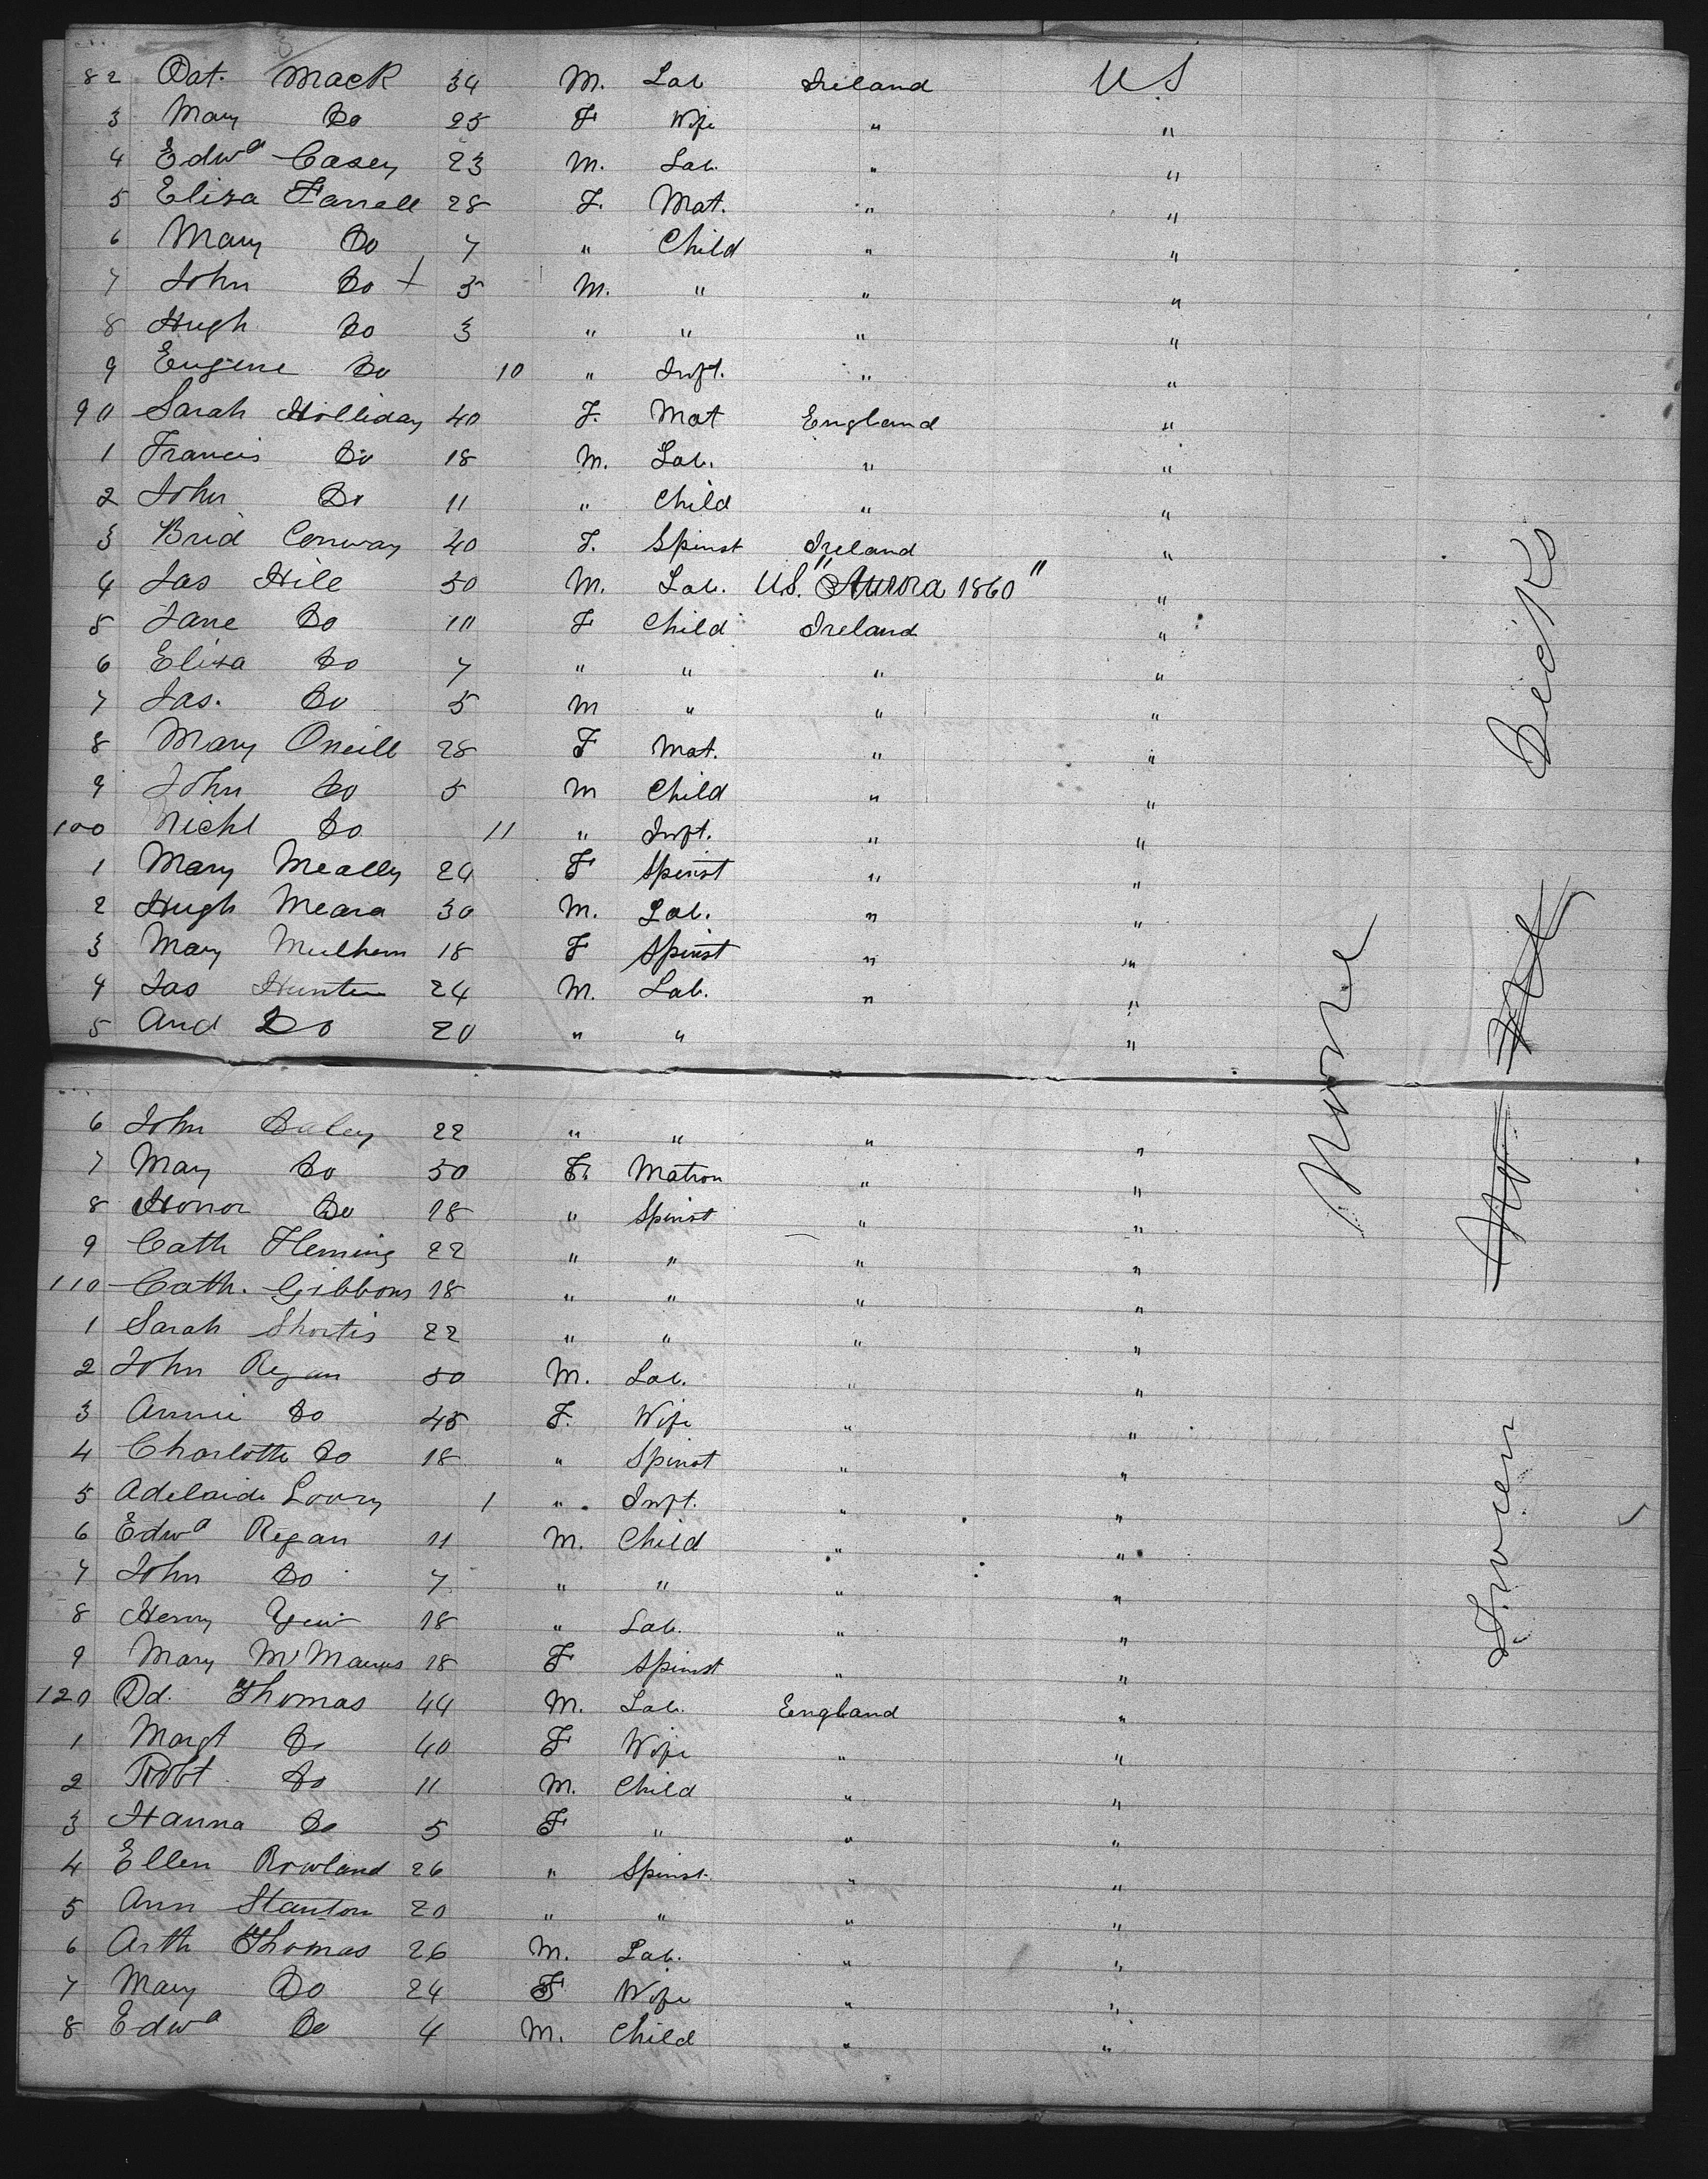 82 Pat. Mack 34 M. Lab Ireland US
3 Mary Do 25 F Wife " "
4 Edwd Casey 23 M. Lab. " "
5 Eliza Farrell 28 F. Mat. " "
6 Mary Do 7 " Child " "
7 John Do + 5 M. " " "
8 Hugh Do 3 " " " "
9 Eugene Do 10 " Inft. " "
90 Sarah Holliday 40 F. Mat England "
1 Francis Do 18 M. Lab. " "
2 John Do 11 " Child " "
3 Brid Conway 40 F. Spinst Ireland "
4 Jas Hill 50 M. Lab. US. "Aurora 1860" "
5 Jane Do 10 F Child Ireland "
6 Eliza Do 7 " " " "
7 Jas. Do 5 M " " "
8 Mary Oneill 28 F Mat. " "
9 John Do 5 M Child " "
100 Michl Do 11 " Inft. " "
1 Mary Meally 24 F Spinst " "
2 Hugh Meara 30 M. Lab. " "
3 Mary Mulhern 18 F Spinst " "
4 Jas Hunter 24 M. Lab. " "
5 And Do 20 " " " "
6 John Daley 22 " " " "
7 Mary Do 50 F. Matron " "
8 Honor Do 18 " Spinst " "
9 Cath Fleming 22 " " " "
110 Cath. Gibbons 18 " " " "
1 Sarah Shortis 22 " " " "
2 John Regan 50 M. Lab. " "
3 Annie Do 45 F. Wife " "
4 Charlotte Do 18 " Spinst " "
5 Adelaide Lowry 1 " Inft. " "
6 Edwd Regan 11 M. Child " "
7 John Do 7 " " " "
8 Henry 18 " Lab. " "
9 Mary McManus 18 F Spinst " "
120 Dd. Thomas 44 M. Lab. England "
1 Margt Do 40 F Wife " "
2 Robt Do 11 M. Child " "
3 Hanna Do 5 F " " "
4 Ellen Rowland 26 " Spinst. " "
5 Ann Stanton 20 " " " "
6 Arth Thomas 26 M. Lab. " "
7 Mary Do 24 F Wife " "
8 Edwd Do 4 M. Child " "
None